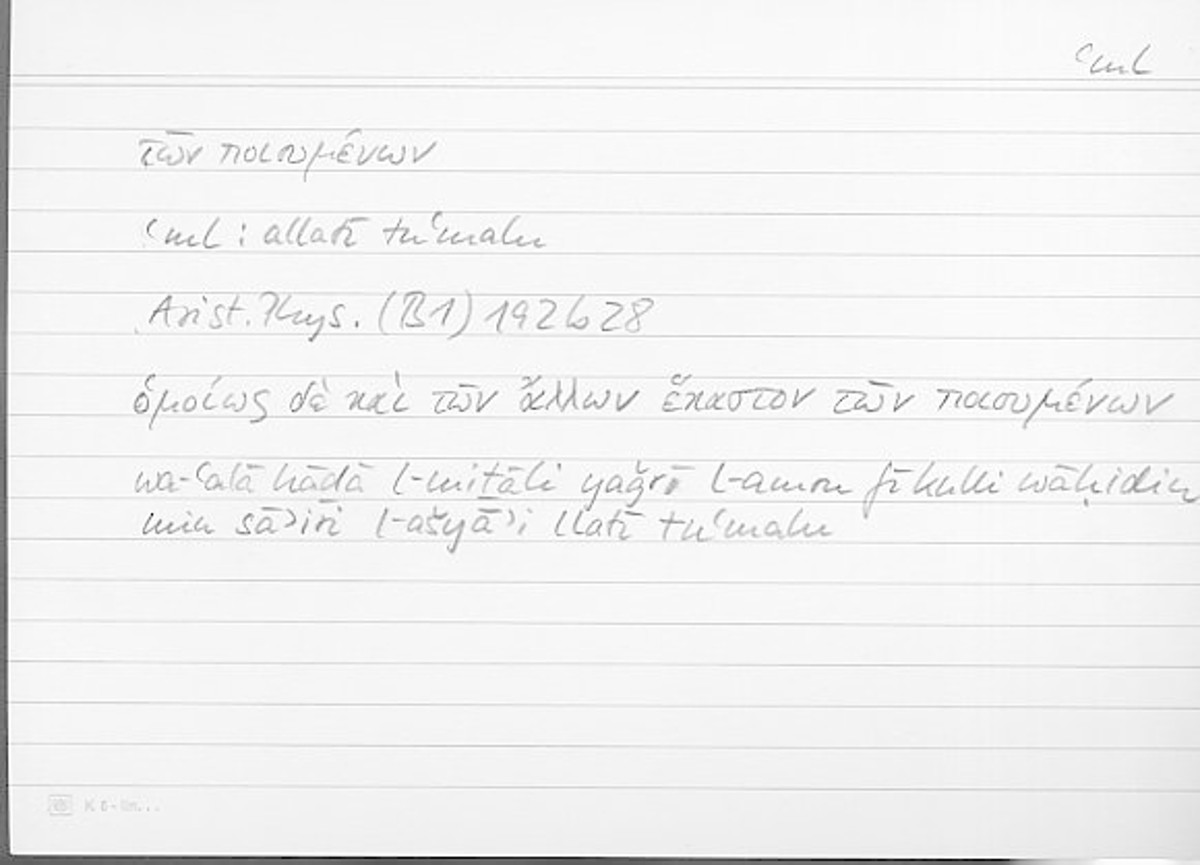 ʿml
τῶν ποιουμένων
ʿml : allatī tuʿmalu
Arist. Phys. (B1) 192b28
ὁμοίως δὲ καὶ τῶν ἄλλων ἕκαστον τῶν ποιουμένων
wa-ʿalā hāḏā l-miṯāli yaǧrī l-amru fī kulli wāḥidin
min sāʾiri l-ašyāʾi llatī tuʿmalu